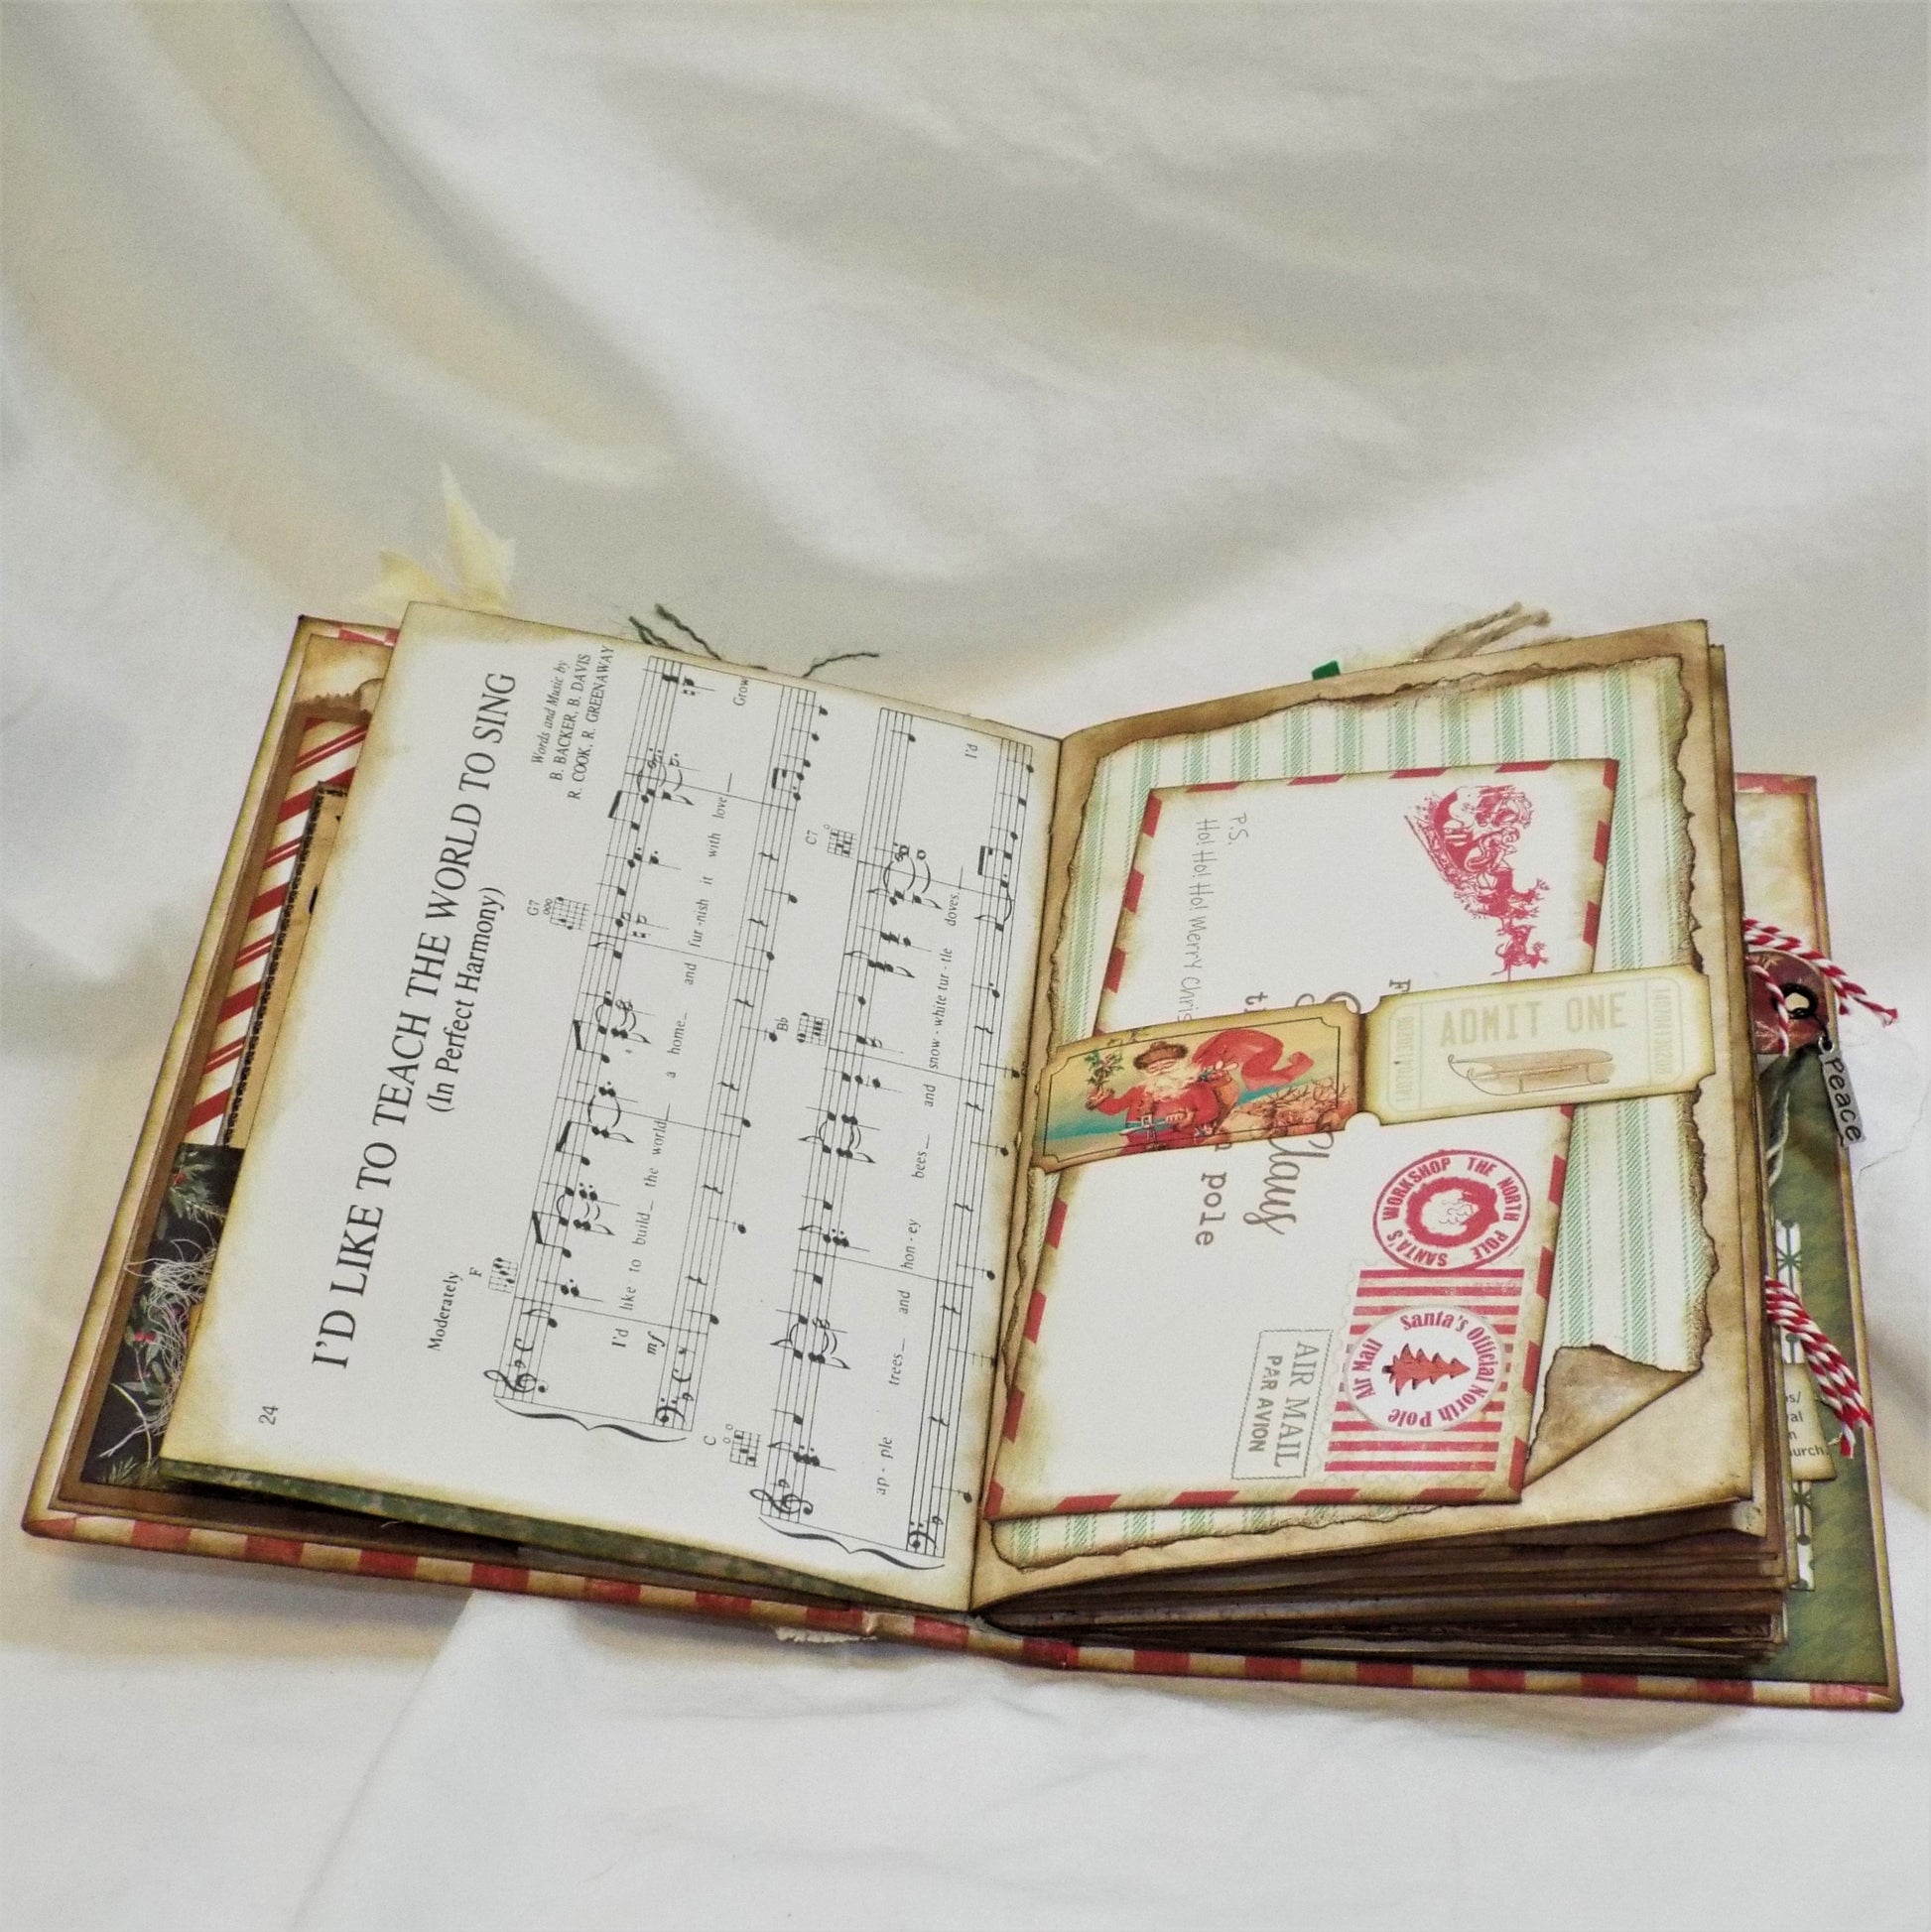 24
I'D LIKE TO TEACH THE WORLD TO SING
(In Perfect Harmony)
Words and Music by
B. BACKER, B. DAVIS
R. COOK, R. GREENAWAY
Moderately
F
G7
I'd like to build_ the world_ a home_ and fur-nish it with love_ Grow
mf
C
Bb
C7
ap - ple trees_ and hon - ey bees_ and snow - white tur - tle doves_ I'd
P.S.
Ho! Ho! Ho! Merry
Claus
pole
ADMIT ONE
SANTA'S WORKSHOP THE NORTH POLE
Air Mail
Santa's Official North Pole
AIR MAIL
PAR AVION
Peace